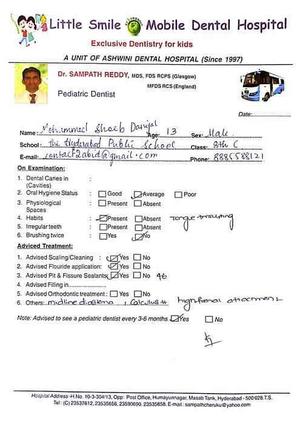 Little Smile Mobile Dental Hospital
Exclusive Dentistry for kids
A UNIT OF ASHWINI DENTAL HOSPITAL (Since 1997)
Dr. SAMPATH REDDY, MDS, FDS RCPS (Glasgow)
MFDS RCS (England)
Pediatric Dentist
Date:
Name: Mohammed Shoaib Age: 13 Sex: Male
School: The Hyderabad Public School Class: 8th C
E-mail: contact2abid@gmail.com Phone: 8885588121
On Examination:
1. Dental Caries in :
(Cavities)
2. Oral Hygiene Status : Good Average Poor
3. Physiological : Present Absent
Spaces
4. Habits : Present Absent Tongue thrusting
5. Irregular teeth : Present Absent
6. Brushing twice : Yes No
Adviced Treatment:
1. Advised Scaling/Cleaning : Yes No
2. Advised Flouride application: Yes No
3. Advised Pit & Fissure Sealants: Yes No 46
4. Advised Filling in
5. Advised Orthodontic treatment : Yes No
6. Others: midline diastema, calculus ++ high frenal attachment
Note: Advised to see a pediatric dentist every 3-6 months. Yes No
Hospital Address -H.No. 10-3-304/13, Opp: Post Office, Humayunnagar, Masab Tank, Hyderabad - 500 028 T.S.
Tel: (C) 23537612, 23535658, 23590690, 23535858. E-mail : sampathcheruku@yahoo.com